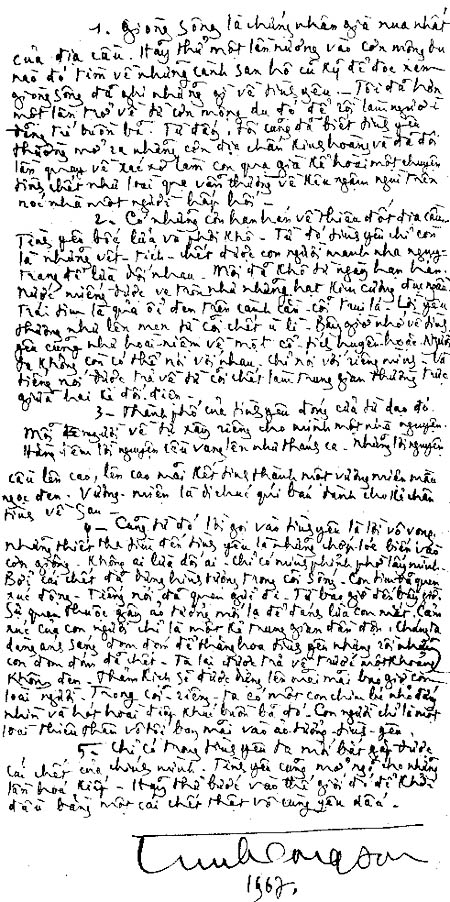 1. Giòng sông là chứng nhân già nua nhất
của địa cầu. Hãy thử một lần nương vào cơn mộng du
nào đó tìm về những cành san hô cũ kỹ để đọc xem
giòng sông đã ghi những gì về tình yêu. Tôi đã hơn
một lần trở về từ cơn mộng du đó để rồi làm người
buồn bã. Từ đấy, tôi cũng đã biết tình yêu
thường mở ra những cơn địa chấn kinh hoàng và đã đôi
lần quay về xác xơ làm con quạ già kể hoài một chuyện
tình chết như loài quạ vẫn thường về kêu ngậm ngùi trên
nóc nhà một người hấp hối.
2. Có những cơn hạn hán về thiêu đốt địa cầu.
Tình yêu bốc lửa và phơi khô. Từ đó tình yêu chỉ còn
là những vết tích chết được con người manh nha nguỵ
trang để lừa dối nhau. Môi đã khô từ ngàn hạn hán.
Nước miếng được ve tròn như những hạt kim cương đục ngầu.
Trái tim là quả ổi đen trên cành cằn cỗi trụi lá. Lời yêu
thương như lên men từ cõi chết u ê. Bây giờ nhớ về tình
yêu cũng như hoài niệm về một cổ tích huyền hoặc. Người
ta không còn có thể nói với nhau, chỉ nói với riêng mình. Và
tiếng nói được trả về từ cõi chết làm trung gian thường trực
giữa hai kẻ đối diện.
3. Thành phố của tình yêu đóng cửa từ dạo đó.
Mỗi người về tự xây riêng cho mình một nhà nguyện.
Hằng đêm lời nguyện cầu vang lên như thánh ca. Những lời nguyện
cầu lên cao, lên cao mãi kết tinh thành một vương miện màu
ngọc đen. Vương miện là di chúc quí báu dành cho kẻ chân
tình về sau.
4. Cũng từ đó lời gọi vào tình yêu là lời vô vọng.
Những thiết tha tìm đến tình yêu là những chớp loé biến vào
cơn giông. Không ai lừa dối ai. Chỉ có mình phỉnh phờ lấy mình.
Bởi cái chết đã tượng hình trong cõi sống. Con tim đã quên
xúc động. Tiếng nói đã quên gọi. Từ bao giờ đến bây giờ
Sự quen thuộc gây ảo tưởng mới lạ để đánh lừa con mắt. Cảm
xúc của con người chỉ là một kẻ trung gian đần độn. Chúng ta
dùng ánh sáng đom đóm để thăng hoa tình yêu nhưng rồi những
con đom đóm đã chết. Ta lại được trả về trước một khoảng
không đen. Thảm kịch sẽ được dựng lên mãi mãi bao giờ còn
loài người. Trong cõi riêng ta có một con chim bé nhỏ đứng
nhìn và hát hoài điệp khúc buồn bã đó. Con người chỉ là một
loài thiêu thân vô tội bay mãi vào ảo tưởng tình yêu.
5. Chỉ có trong tình yêu ta mới bắt gặp được
cái chết của chính mình. Tình yêu cũng mở ngõ cho những
lần hoá kiếp. Hãy thử bước vào thế giới đó để khởi
đầu bằng một cái chết thật vô cùng yêu dấu.
Trinhcongson
1967.